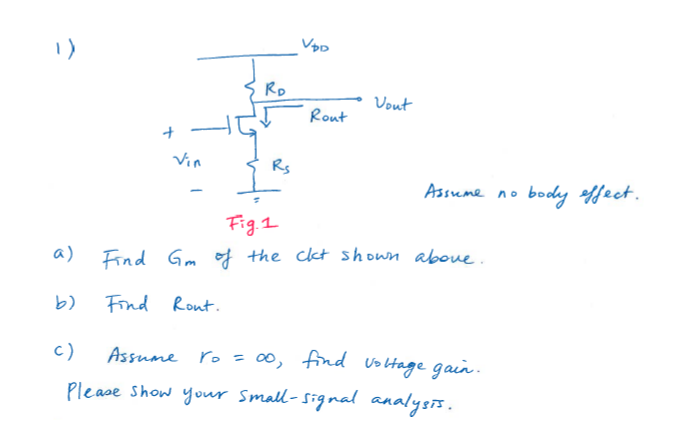 1)
VDD
RD
Vout
Rout
+
Vin
-
RS
Assume no body effect.
Fig.1
a) Find Gm of the ckt shown above.
b) Find Rout.
c) Assume ro = ∞, find voltage gain.
Please show your small-signal analysis.